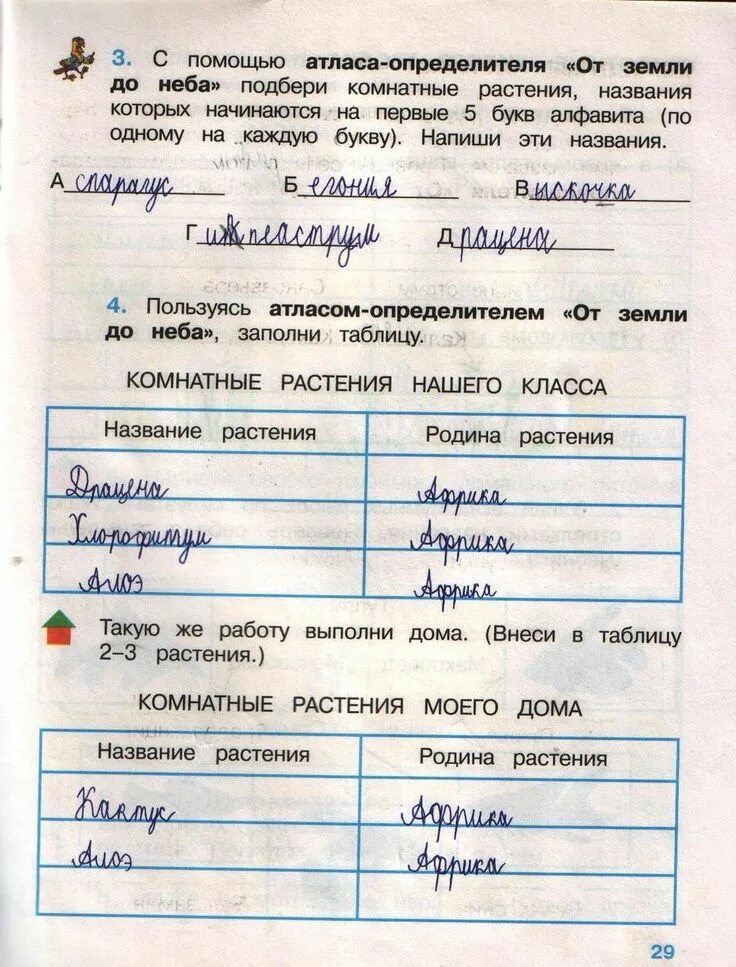 3. С помощью атласа-определителя «От земли
до неба» подбери комнатные растения, названия
которых начинаются на первые 5 букв алфавита (по
одному на каждую букву). Напиши эти названия.
Аспарагус Бегония Выскочка
Гиппеаструм Драцена
4. Пользуясь атласом-определителем «От земли
до неба», заполни таблицу.
КОМНАТНЫЕ РАСТЕНИЯ НАШЕГО КЛАССА
Название растения Родина растения
Драцена Африка
Хлорофитум Африка
Алоэ Африка
Такую же работу выполни дома. (Внеси в таблицу
2–3 растения.)
КОМНАТНЫЕ РАСТЕНИЯ МОЕГО ДОМА
Название растения Родина растения
Кактус Африка
Алоэ Африка
29